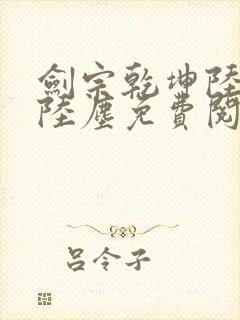 劍宗乾坤陸
陸塵免費閱
呂令子